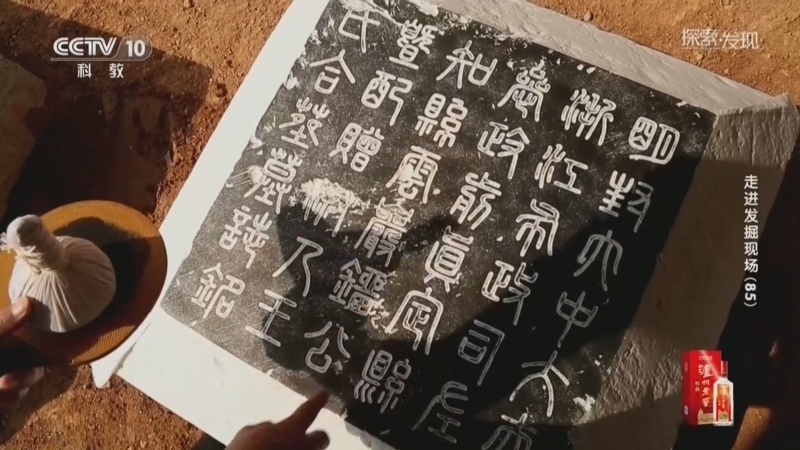 CCTV 10
科教
探索·发现
走进发掘现场(85)
明封大中大夫
浙江布政司左
參政前真定縣
知縣雲巖公
暨配贈人王
氏合葬墓誌銘
泸州老窖